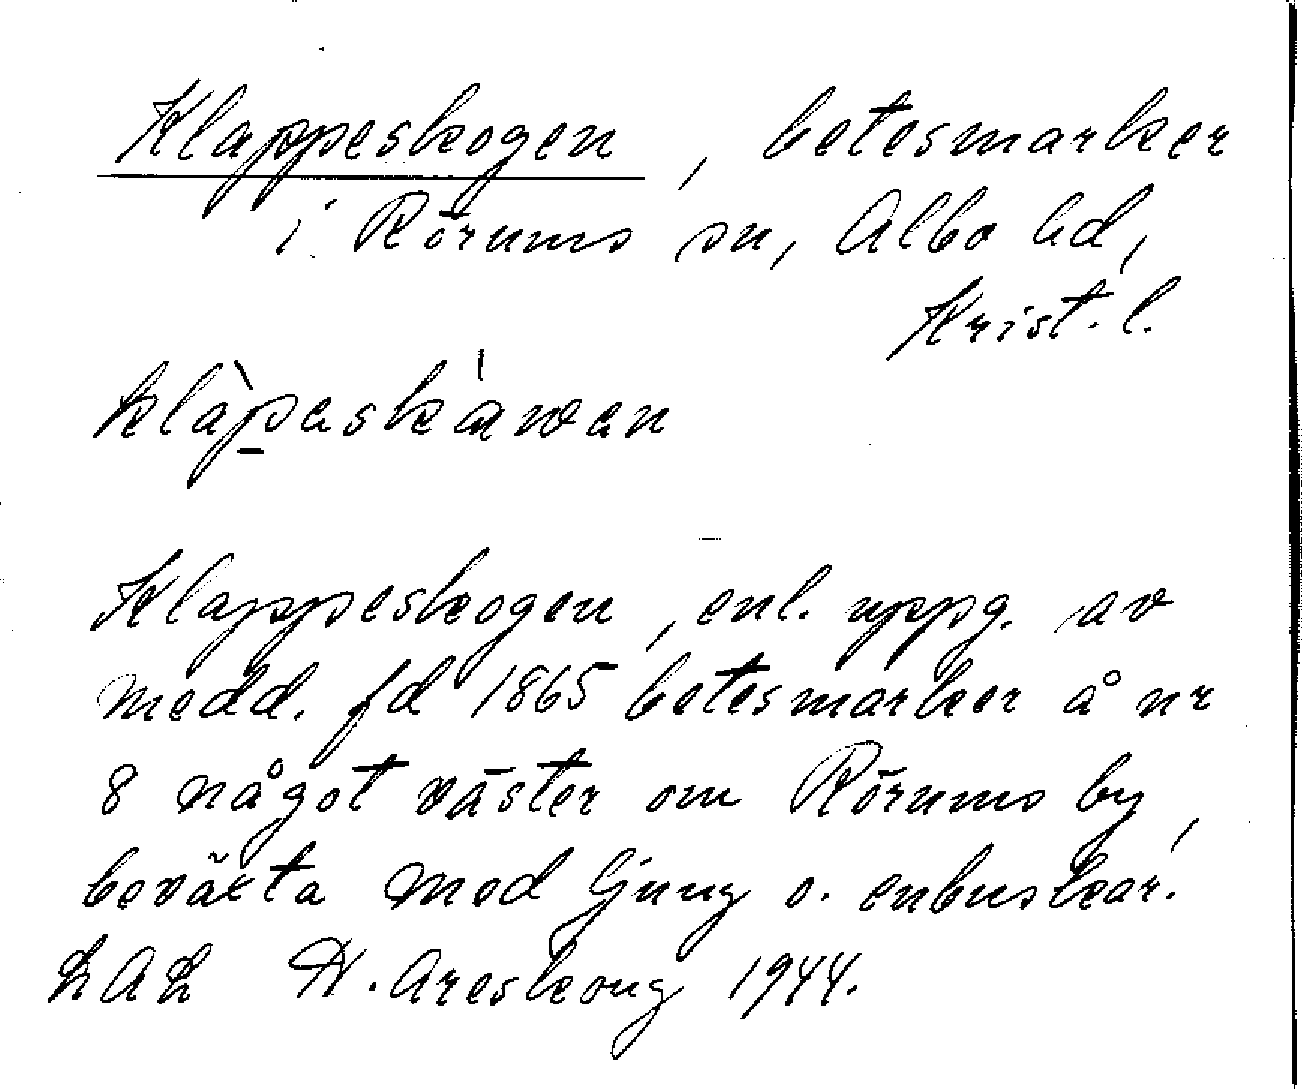 Klappeskogen, betesmarker
i Rörums sn, Albo hd,
Krist. l.
klàpeskåwen
Klappeskogen, enl. uppg. av
medd. fd 1865 betesmarker å nr
8 något väster om Rörums by,
beväxta med ljung o. enbuskar.
LAL H. Areskoug 1944.